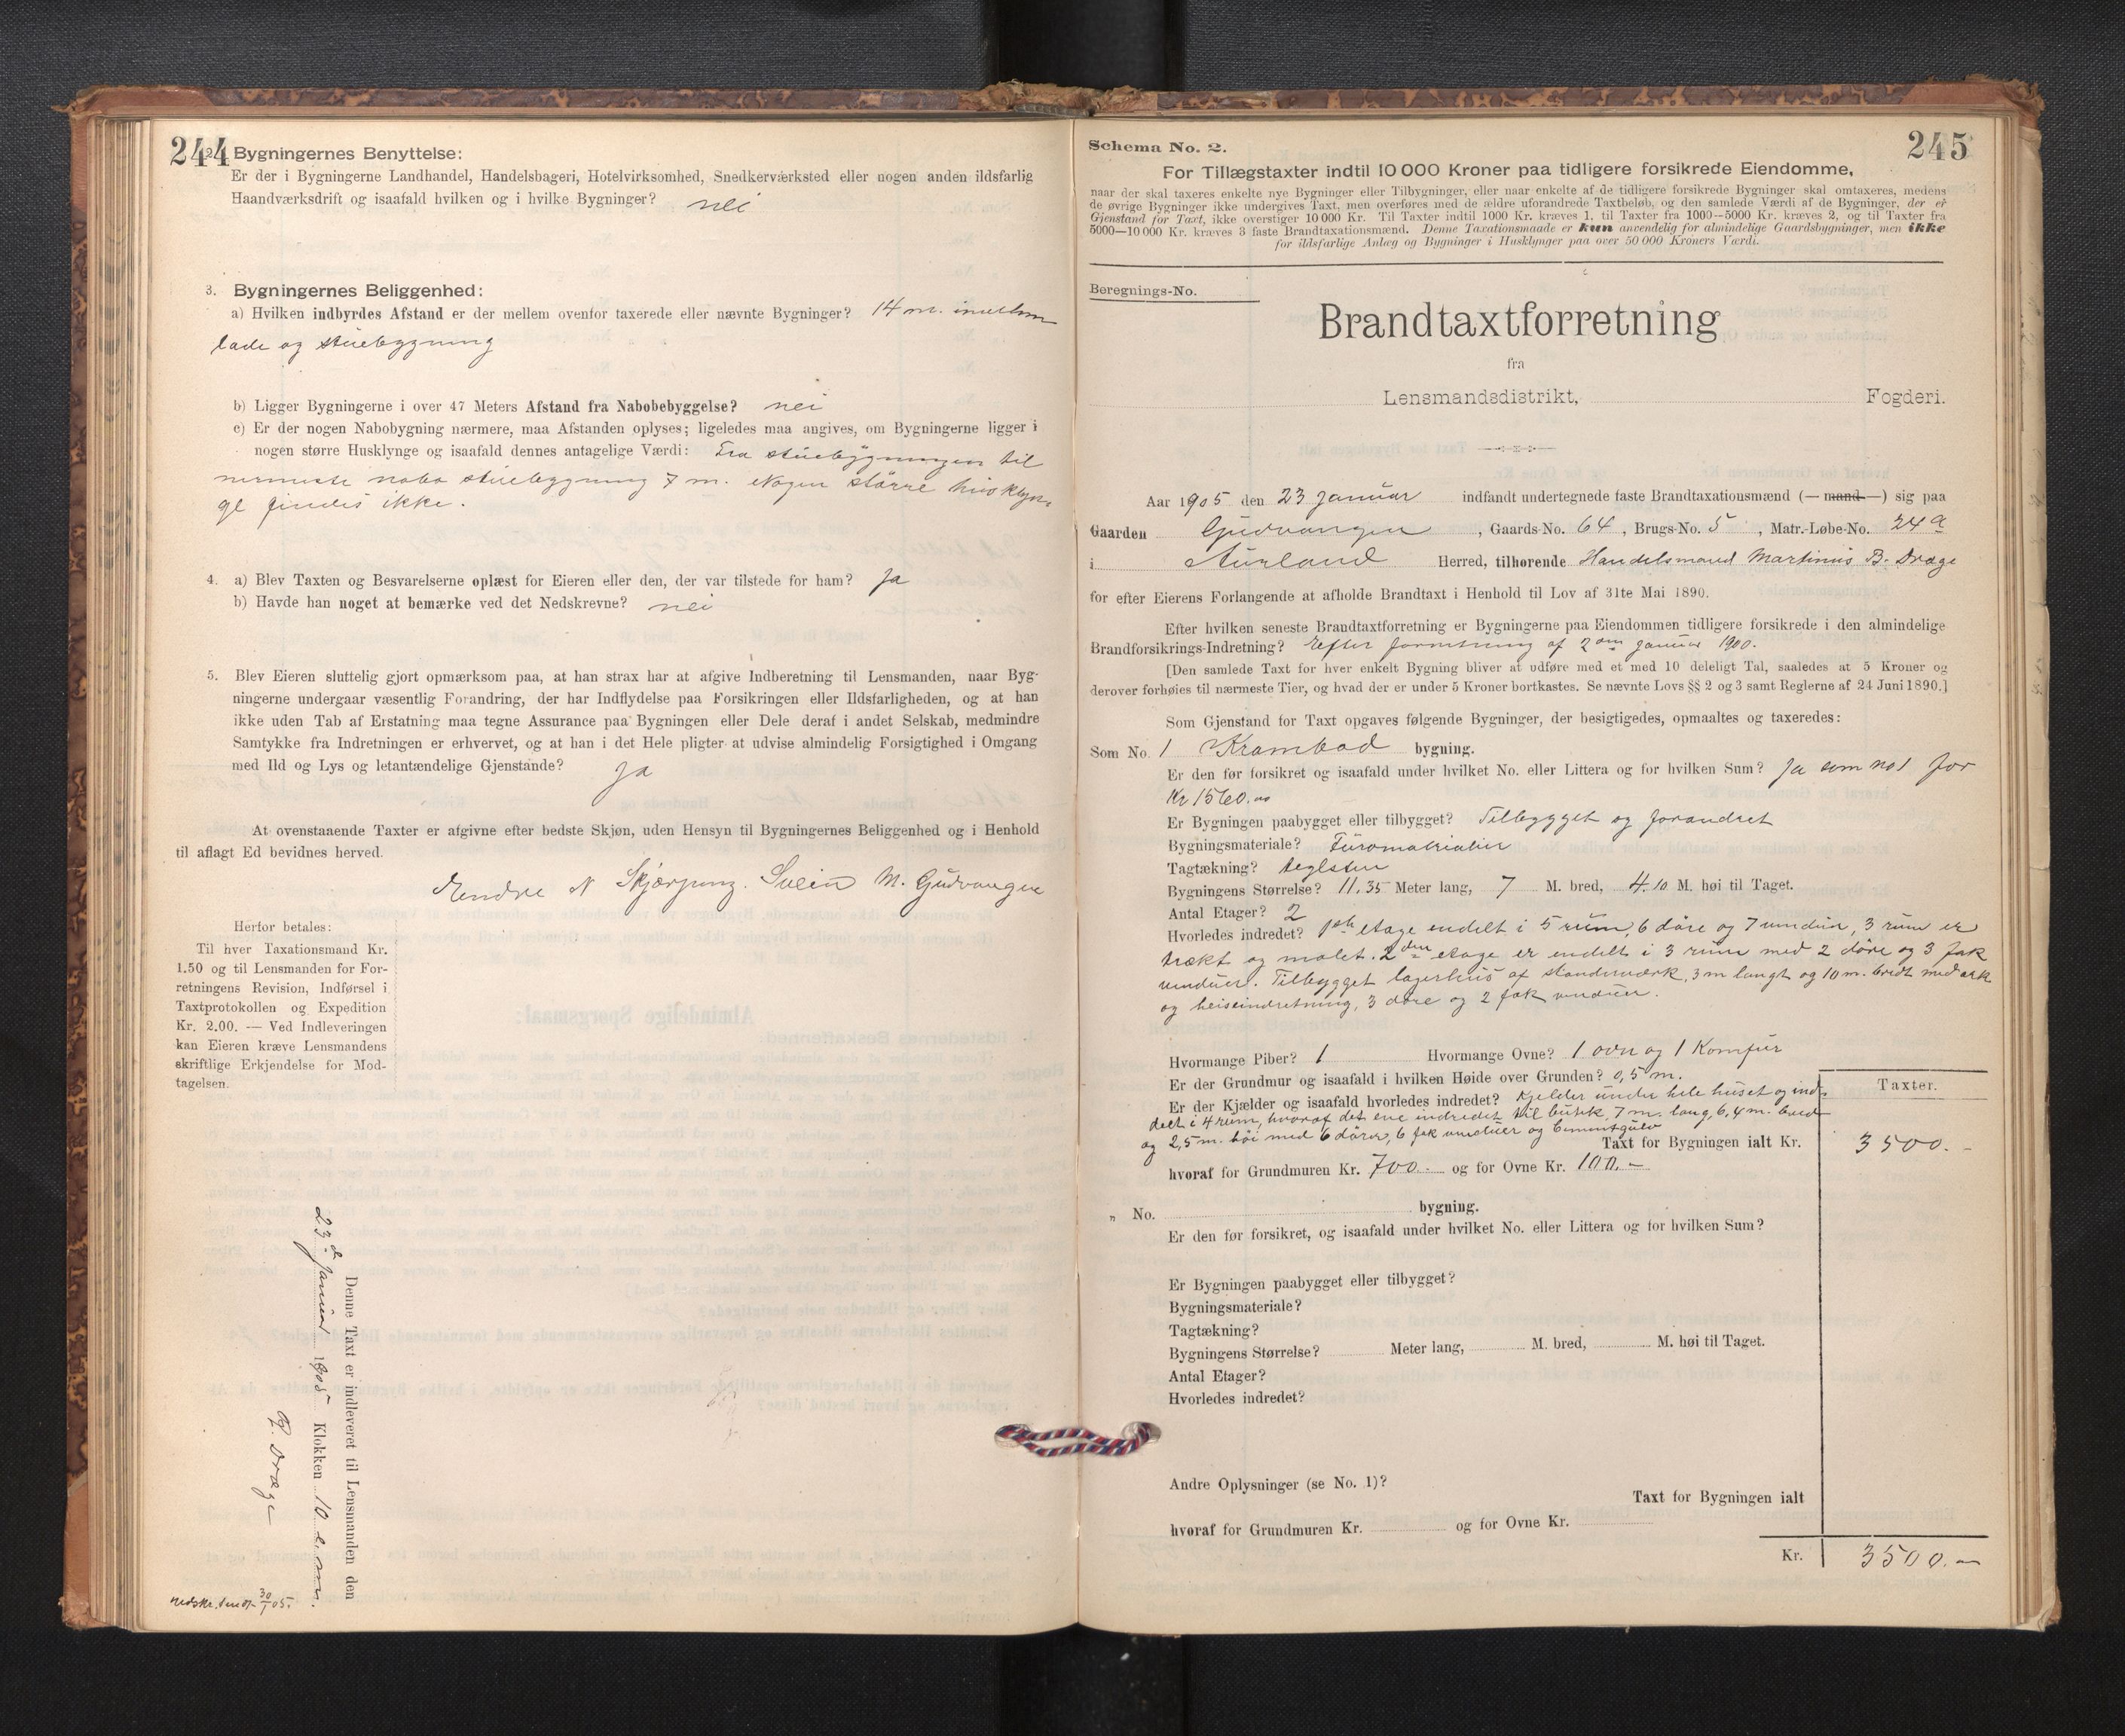 244
2. Bygningernes Benyttelse:
Er der i Bygningerne Landhandel, Handelsbageri, Hotelvirksomhed, Snedkerværksted eller nogen anden ildsfarlig
Haandværksdrift og isaafald hvilken og i hvilke Bygninger? nei
3. Bygningernes Beliggenhed:
a) Hvilken indbyrdes Afstand er der mellem ovenfor taxerede eller nævnte Bygninger? 14 m. imellem
lade og stuebygning
b) Ligger Bygningerne i over 47 Meters Afstand fra Nabobebyggelse? nei
c) Er der nogen Nabobygning nærmere, maa Afstanden oplyses; ligeledes maa angives, om Bygningerne ligger i
nogen større Husklynge og isaafald dennes antagelige Værdi: Fra stuebygningen til
nermeste nabo stuebygning 7 m. Nogen større husklyn-
ge findes ikke.
4. a) Blev Taxten og Besvarelserne oplæst for Eieren eller den, der var tilstede for ham? Ja
b) Havde han noget at bemærke ved det Nedskrevne? nei
5. Blev Eieren sluttelig gjort opmærksom paa, at han strax har at afgive Indberetning til Lensmanden, naar Byg-
ningerne undergaar væsentlig Forandring, der har Indflydelse paa Forsikringen eller Ildsfarligheden, og at han
ikke uden Tab af Erstatning maa tegne Assurance paa Bygningen eller Dele deraf i andet Selskab, medmindre
Samtykke fra Indretningen er erhvervet, og at han i det Hele pligter at udvise almindelig Forsigtighed i Omgang
med Ild og Lys og letantændelige Gjenstande? Ja
At ovenstaaende Taxter er afgivne efter bedste Skjøn, uden Hensyn til Bygningernes Beliggenhed og i Henhold
til aflagt Ed bevidnes herved.
Endre N Skjerping. Svein M. Gudvangen
Herfor betales:
Til hver Taxationsmand Kr.
1.50 og til Lensmanden for For-
retningens Revision, Indførsel i
Taxtprotokollen og Expedition
Kr. 2.00. — Ved Indleveringen
kan Eieren kræve Lensmandens
skriftlige Erkjendelse for Mod-
tagelsen.
Denne Taxt er indleveret til Lensmanden den
23de Januar 1905 Klokken 10 e.m.
B. Dræge
30/1 05.
245
Schema No. 2.
For Tillægstaxter indtil 10 000 Kroner paa tidligere forsikrede Eiendomme,
naar der skal taxeres enkelte nye Bygninger eller Tilbygninger, eller naar enkelte af de tidligere forsikrede Bygninger skal omtaxeres, medens
de øvrige Bygninger ikke undergives Taxt, men overføres med de ældre uforandrede Taxtbeløb, og den samlede Værdi af de Bygninger, der er
Gjenstand for Taxt, ikke overstiger 10 000 Kr. Til Taxter indtil 1000 Kr. kræves 1, til Taxter fra 1000—5000 Kr. kræves 2, og til Taxter fra
5000—10 000 Kr. kræves 3 faste Brandtaxationsmænd. Denne Taxationsmaade er kun anvendelig for almindelige Gaardsbygninger, men ikke
for ildsfarlige Anlæg og Bygninger i Husklynger paa over 50 000 Kroners Værdi.
Beregnings-No.
Brandtaxtforretning
fra
Lensmandsdistrikt, Fogderi.
Aar 1905 den 23 Januar indfandt undertegnede faste Brandtaxationsmænd (—mand—) sig paa
Gaarden Gudvangen, Gaards-No. 64, Brugs-No. 5, Matr.-Løbe-No. 24a
i Aurland Herred, tilhørende Handelsmand Martinus B. Dræge
for efter Eierens Forlangende at afholde Brandtaxt i Henhold til Lov af 31te Mai 1890.
Efter hvilken seneste Brandtaxtforretning er Bygningerne paa Eiendommen tidligere forsikrede i den almindelige
Brandforsikrings-Indretning? Efter forretning af 2den Januar 1900.
[Den samlede Taxt for hver enkelt Bygning bliver at udføre med et med 10 deleligt Tal, saaledes at 5 Kroner og
derover forhøies til nærmeste Tier, og hvad der er under 5 Kroner bortkastes. Se nævnte Lovs §§ 2 og 3 samt Reglerne af 24 Juni 1890.]
Som Gjenstand for Taxt opgaves følgende Bygninger, der besigtigedes, opmaaltes og taxeredes:
Som No. 1 Krambod bygning.
Er den før forsikret og isaafald under hvilket No. eller Littera og for hvilken Sum? Ja som no 1 for
Kr 1560.00
Er Bygningen paabygget eller tilbygget? Tilbygget og forandret
Bygningsmateriale? Furomaterialier
Tagtækning? teglsten
Bygningens Størrelse? 11.35 Meter lang, 7 M. bred, 4.10 M. høi til Taget.
Antal Etager? 2
Hvorledes indredet? 1ste etage endelt i 5 rum, 6 døre og 7 vinduer, 3 rum er
trækt og malet. 2den etage er endelt i 3 rum med 2 døre og 3 fak
vinduer. Tilbygget lagerhus af standverk, 3 m langt og 10 m. bredt med ark
og heiseindretning, 3 døre og 2 fak vinduer.
Hvormange Piber? 1 Hvormange Ovne? 1 ovn og 1 Komfur
Er der Grundmur og isaafald i hvilken Høide over Grunden? 0,5 m.
Er der Kjælder og isaafald hvorledes indredet? Kjelder under hele huset og ind-
delt i 4 rum, hvoraf det ene indredet til butik, 7 m. lang, 6,4 m. bred
og 2,5 m. høi med 6 dører, 6 fak vinduer og Cementgulv
Taxter.
Taxt for Bygningen ialt Kr. 3500.-
hvoraf for Grundmuren Kr. 700.- og for Ovne Kr. 100.-
„ No. bygning.
Er den før forsikret, og isaafald under hvilket No. eller Littera og for hvilken Sum?
Er Bygningen paabygget eller tilbygget?
Bygningsmateriale?
Tagtækning?
Bygningens Størrelse? Meter lang, M. bred, M. høi til Taget.
Antal Etager?
Hvorledes indredet?
Andre Oplysninger (se No. 1)?
Taxt for Bygningen ialt
hvoraf for Grundmuren Kr. og for Ovne Kr.
Kr. 3500.-